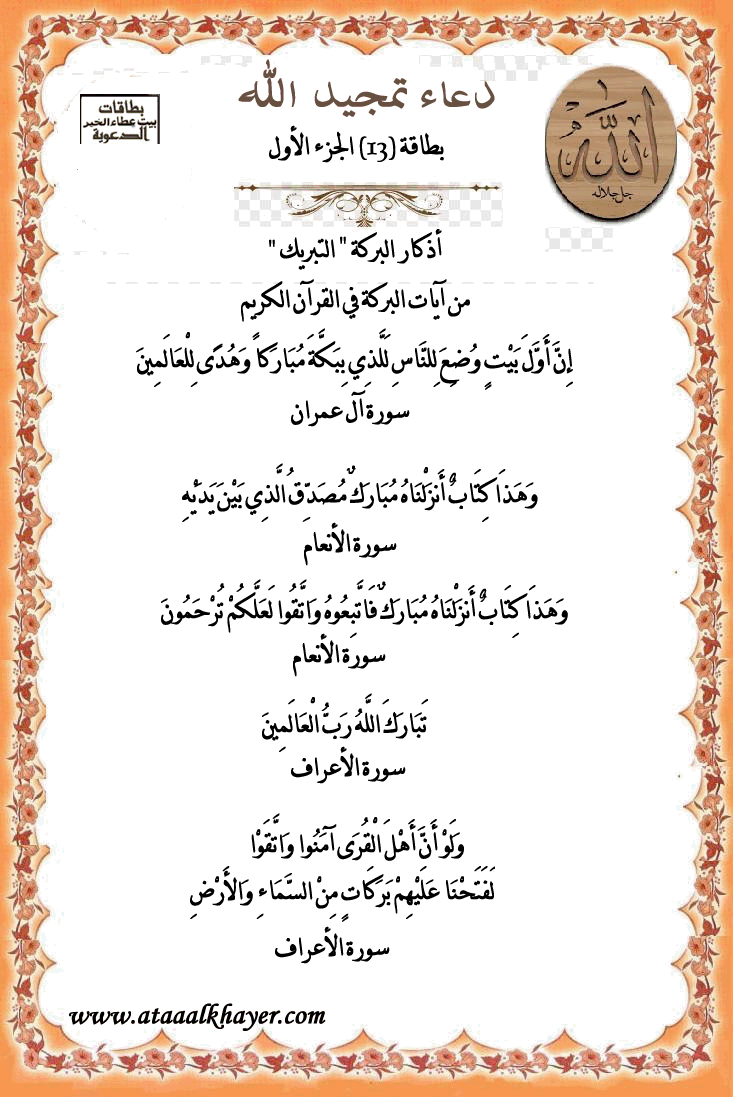 دعاء تمجيد الله
بطاقات
بيت عطاء الخير
الدعوية
الله
جل جلاله
بطاقة (13) الجزء الأول
أذكار البركة " التبريك "
من آيات البركة في القرآن الكريم
إِنَّ أَوَّلَ بَيْتٍ وُضِعَ لِلنَّاسِ لَلَّذِي بِبَكَّةَ مُبَارَكاً وَهُدًى لِلْعَالَمِينَ
سورة آل عمران
وَهَذَا كِتَابٌ أَنزَلْنَاهُ مُبَارَكٌ مُصَدِّقُ الَّذِي بَيْنَ يَدَيْهِ
سورة الأنعام
وَهَذَا كِتَابٌ أَنزَلْنَاهُ مُبَارَكٌ فَاتَّبِعُوهُ وَاتَّقُوا لَعَلَّكُمْ تُرْحَمُونَ
سورة الأنعام
تَبَارَكَ اللَّهُ رَبُّ الْعَالَمِينَ
سورة الأعراف
وَلَوْ أَنَّ أَهْلَ الْقُرَى آمَنُوا وَاتَّقَوْا
لَفَتَحْنَا عَلَيْهِمْ بَرَكَاتٍ مِنْ السَّمَاءِ وَالأَرْضِ
سورة الأعراف
www.ataaalkhayer.com